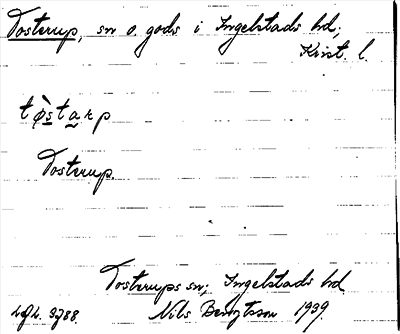 Tosterup, sn o. gods i Ingelstads hd,
Krist. l.
tø̀starp
Tosterup.
Tosterups sn; Ingelstads hd
Nils Bengtsson 1939.